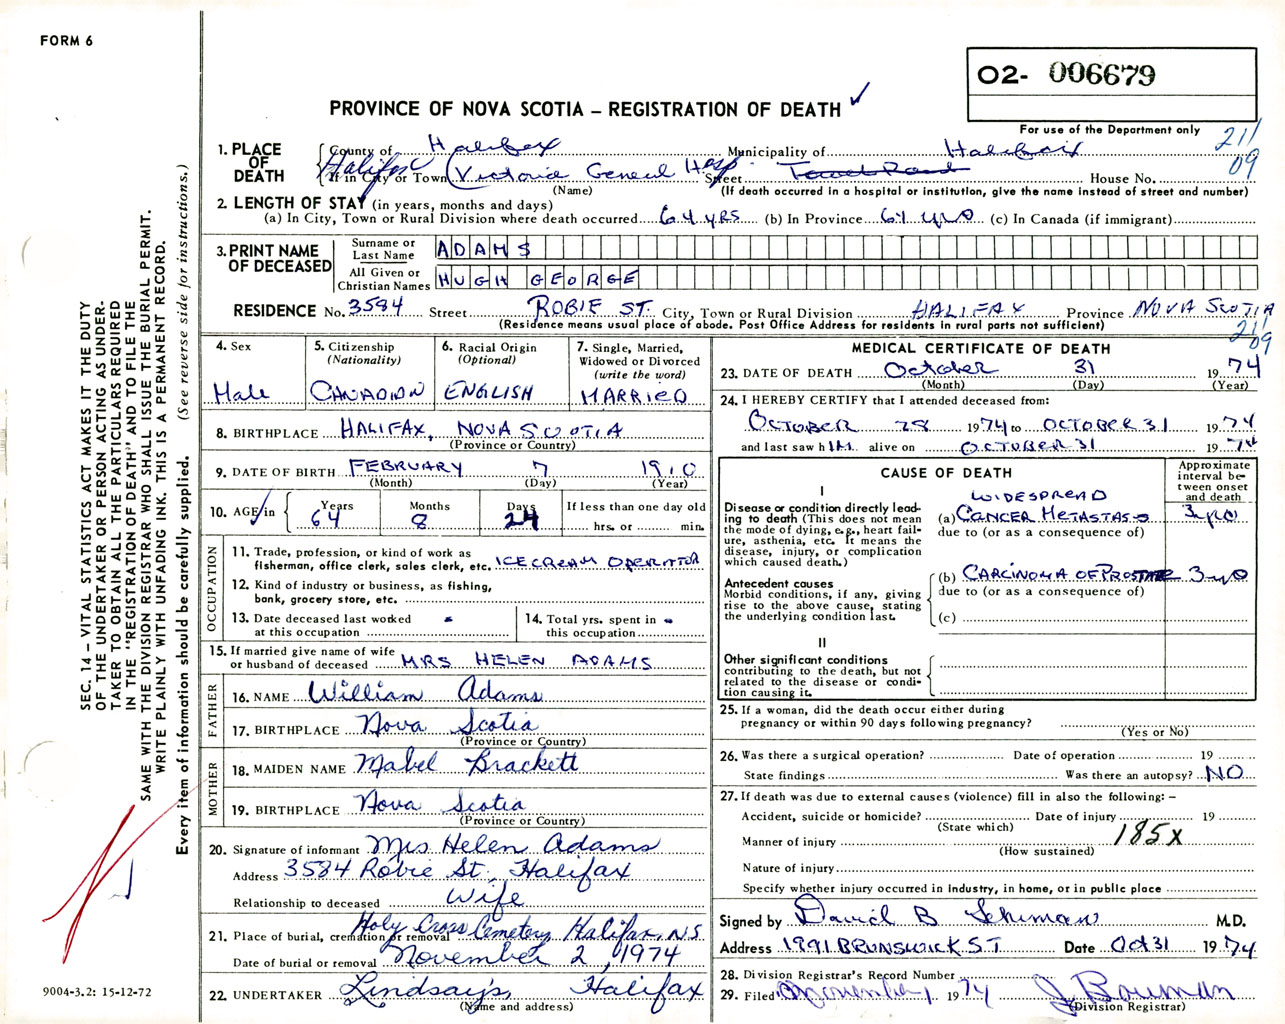 FORM 6
O2- 006679
PROVINCE OF NOVA SCOTIA – REGISTRATION OF DEATH ✓
For use of the Department only
211
09
1. PLACE OF DEATH
County of Halifax Municipality of Halifax
Halifax
If in City or Town (Victoria General Hosp Street Tower Road House No.
(Name) (If death occurred in a hospital or institution, give the name instead of street and number)
2. LENGTH OF STAY (in years, months and days)
(a) In City, Town or Rural Division where death occurred 64 yrs (b) In Province 64 yrs (c) In Canada (if immigrant)
3. PRINT NAME OF DECEASED
Surname or Last Name ADAMS
All Given or Christian Names HUGH GEORGE
RESIDENCE No. 3584 Street ROBIE ST. City, Town or Rural Division HALIFAX Province NOVA SCOTIA
(Residence means usual place of abode. Post Office Address for residents in rural parts not sufficient)
211
09
4. Sex
Male
5. Citizenship
(Nationality)
CANADIAN
6. Racial Origin
(Optional)
ENGLISH
7. Single, Married,
Widowed or Divorced
(write the word)
MARRIED
8. BIRTHPLACE HALIFAX, NOVA SCOTIA
(Province or Country)
9. DATE OF BIRTH FEBRUARY 7 1910
(Month) (Day) (Year)
10. AGE in Years 64 Months 8 Days 24
If less than one day old
hrs. or min.
OCCUPATION
11. Trade, profession, or kind of work as
fisherman, office clerk, sales clerk, etc. ICECREAM OPERATOR
12. Kind of industry or business, as fishing,
bank, grocery store, etc.
13. Date deceased last worked
at this occupation -
14. Total yrs. spent in
this occupation -
15. If married give name of wife
or husband of deceased MRS HELEN ADAMS
FATHER
16. NAME William Adams
17. BIRTHPLACE Nova Scotia
(Province or Country)
MOTHER
18. MAIDEN NAME Mabel Brackett
19. BIRTHPLACE Nova Scotia
(Province or Country)
20. Signature of informant Mrs Helen Adams
Address 3584 Robie St, Halifax
Relationship to deceased Wife
21. Place of burial, cremation or removal Holy Cross Cemetery Halifax, N.S
Date of burial or removal November 2, 1974
22. UNDERTAKER Lindsay's, Halifax
(Name and address)
MEDICAL CERTIFICATE OF DEATH
23. DATE OF DEATH October 31 1974
(Month) (Day) (Year)
24. I HEREBY CERTIFY that I attended deceased from:
OCTOBER 28 1974 to OCTOBER 31 1974
and last saw him alive on OCTOBER 31 1974
CAUSE OF DEATH
Approximate
interval be-
tween onset
and death
I
Disease or condition directly lead-
ing to death (This does not mean
the mode of dying, e.g., heart fail-
ure, asthenia, etc. It means the
disease, injury, or complication
which caused death.)
WIDESPREAD
(a) CANCER METASTASIS 3 yrs
due to (or as a consequence of)
Antecedent causes
Morbid conditions, if any, giving
rise to the above cause, stating
the underlying condition last.
(b) CARCINOMA OF PROSTATE 3 yrs
due to (or as a consequence of)
(c)
II
Other significant conditions
contributing to the death, but not
related to the disease or condi-
tion causing it.
25. If a woman, did the death occur either during
pregnancy or within 90 days following pregnancy?
(Yes or No)
26. Was there a surgical operation? Date of operation 19
State findings Was there an autopsy? NO
27. If death was due to external causes (violence) fill in also the following: –
Accident, suicide or homicide? Date of injury 19
(State which)
Manner of injury 185X
(How sustained)
Nature of injury
Specify whether injury occurred in industry, in home, or in public place
Signed by David B M.D.
Address 1991 BRUNSWICK ST Date Oct 31 1974
28. Division Registrar's Record Number
29. Filed November, 1974 J Bowman
(Division Registrar)
SEC. 14 – VITAL STATISTICS ACT MAKES IT THE DUTY
OF THE UNDERTAKER OR PERSON ACTING AS UNDER-
TAKER TO OBTAIN ALL THE PARTICULARS REQUIRED
IN THE "REGISTRATION OF DEATH" AND TO FILE THE
SAME WITH THE DIVISION REGISTRAR WHO SHALL ISSUE THE BURIAL PERMIT.
WRITE PLAINLY WITH UNFADING INK. THIS IS A PERMANENT RECORD.
Every item of information should be carefully supplied. (See reverse side for instructions.)
9004-3.2: 15-12-72